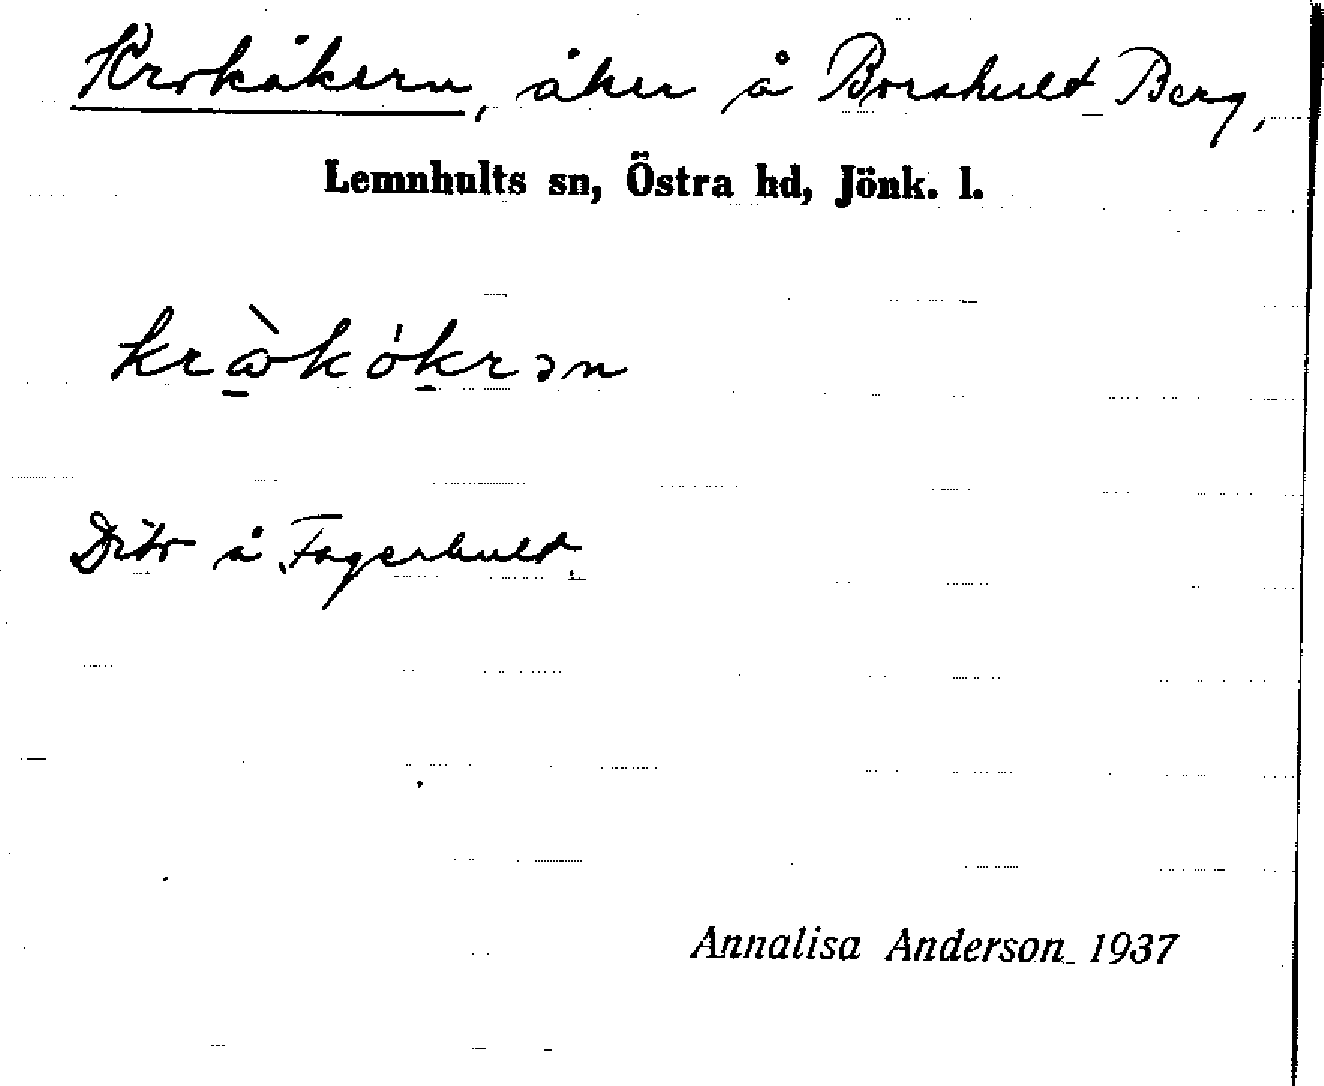 Krokåkern, åker å Borshult Berg,
Lemnhults sn, Östra hd, Jönk. l.
Ditto å Fagerhult.
Annalisa Anderson 1937